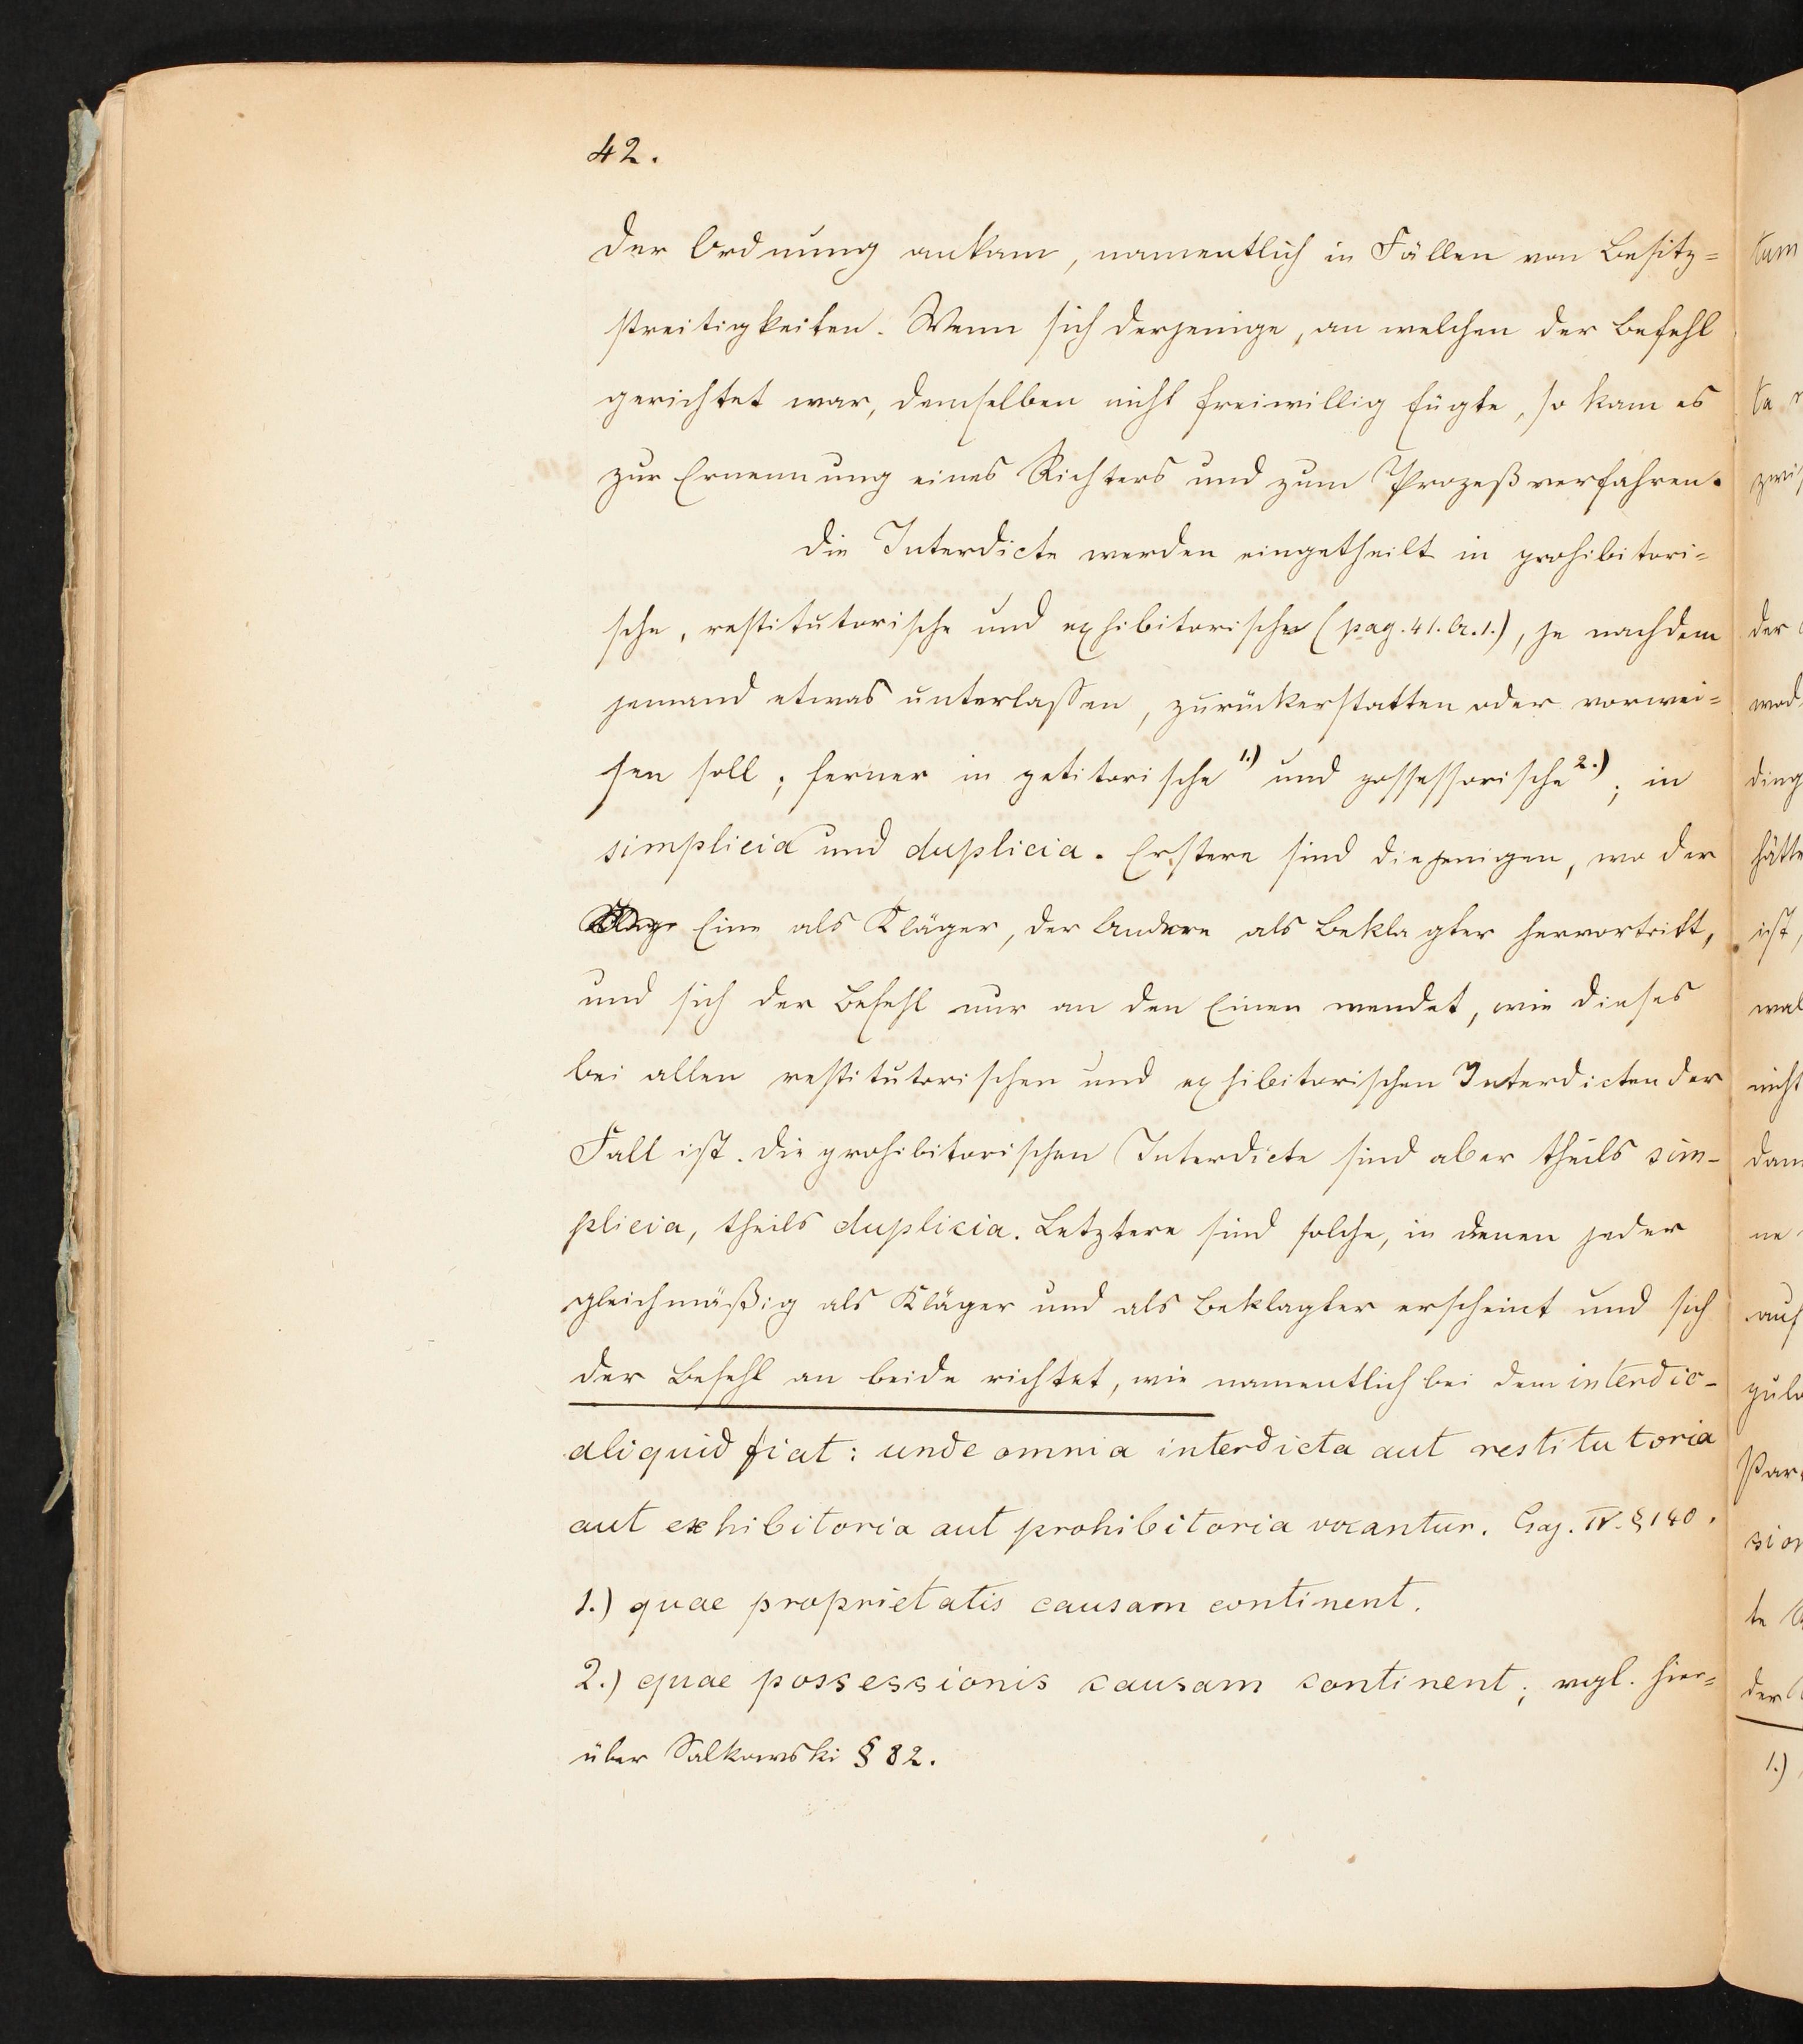 42.
der Ordnung ankam, namentlich in Fällen von Besitz=
streitigkeiten. Wenn sich derjenige, an welchen der Befehl
gerichtet war, demselben nicht freiwillig fügte, so kam es
zur Ernennung eines Richters und zum Prozeßverfahren.
Die Interdicte werden eingetheilt in prohibitori=
sche, restitutorische und exhibitorische (pag. 41. A. 1.), je nachdem
jemand etwas unterlassen, zurückerstatten oder vorwei=
sen soll; ferner in petitorische 1.) und possessorische 2.); in
simplicia und duplicia. Erstere sind diejenigen, wo der
Eine als Kläger, der Andere als Beklagter hervortritt,
und sich der Befehl nur an den Einen wendet, wie dieses
bei allen restitutorischen und exhibitorischen Interdicten der
Fall ist. Die prohibitorischen Interdicte sind aber theils sim-
plicia, theils duplicia. Letztere sind solche, in denen jeder
gleichmäßig als Kläger und als Beklagter erscheint und sich
der Befehl an beide richtet, wie namentlich bei dem interdic-
aliquid fiat: unde omnia interdicta aut restitutoria
aut exhibitoria aut prohibitoria vocantur. Gaj. IV. § 140.
1.) quae proprietatis causam continent.
2.) quae possessionis causam continent; vgl. hier=
über Salkowski § 82.